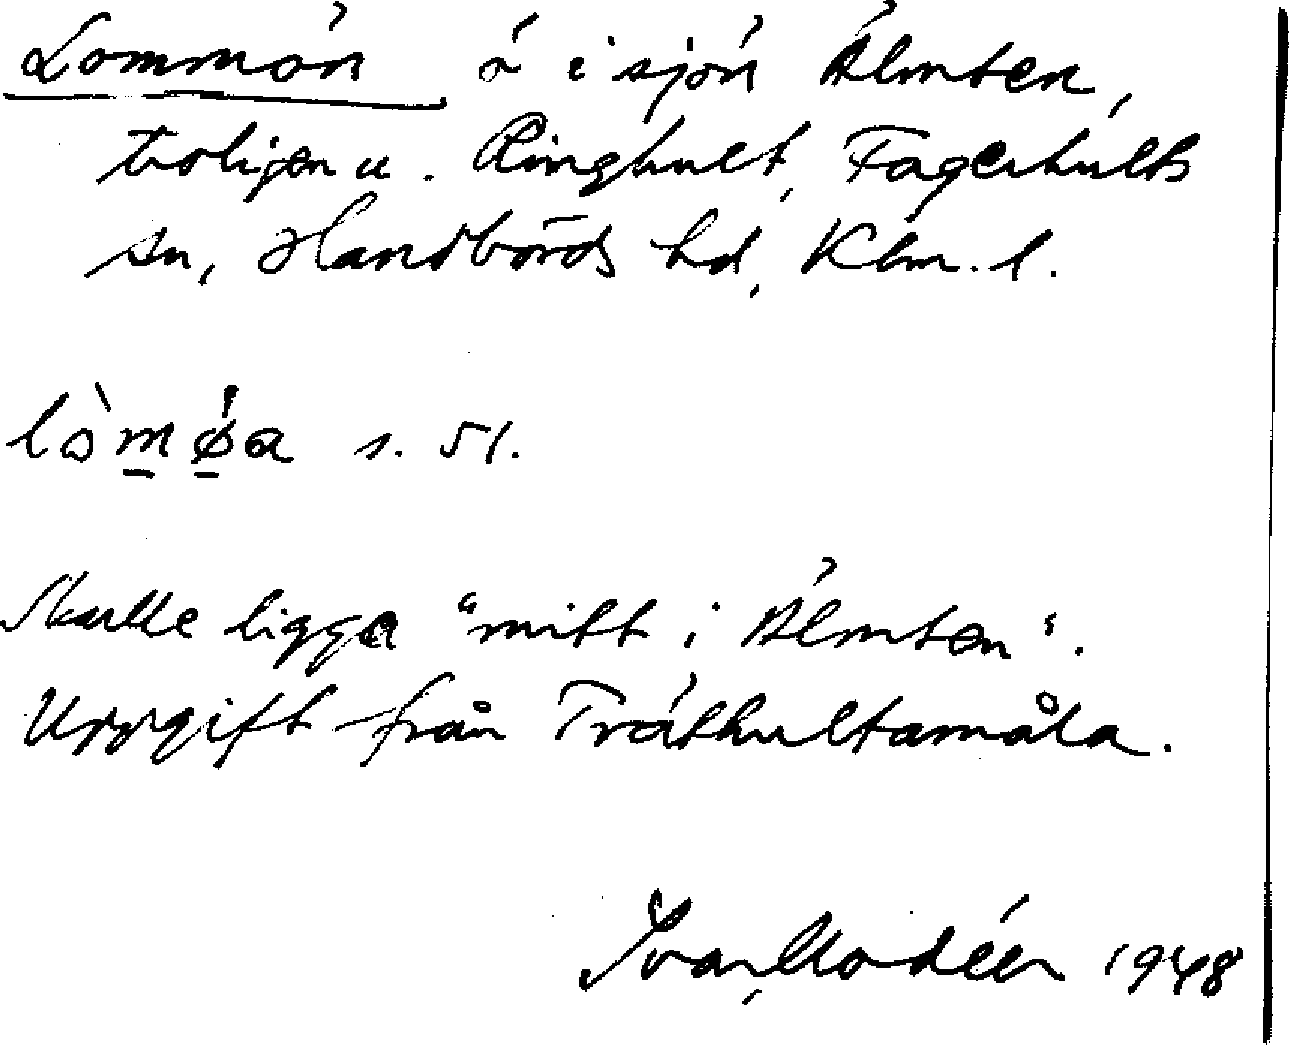 Lommön ö i sjön Älmten,
troligen u. Ringhult, Fagerhults
sn, Handbörds hd, Klm. l.
lòmø̀a s. 51.
Skulle ligga "mitt i Älmten".
Uppgift från Träthultamåla.
Ivar Modéer 1948